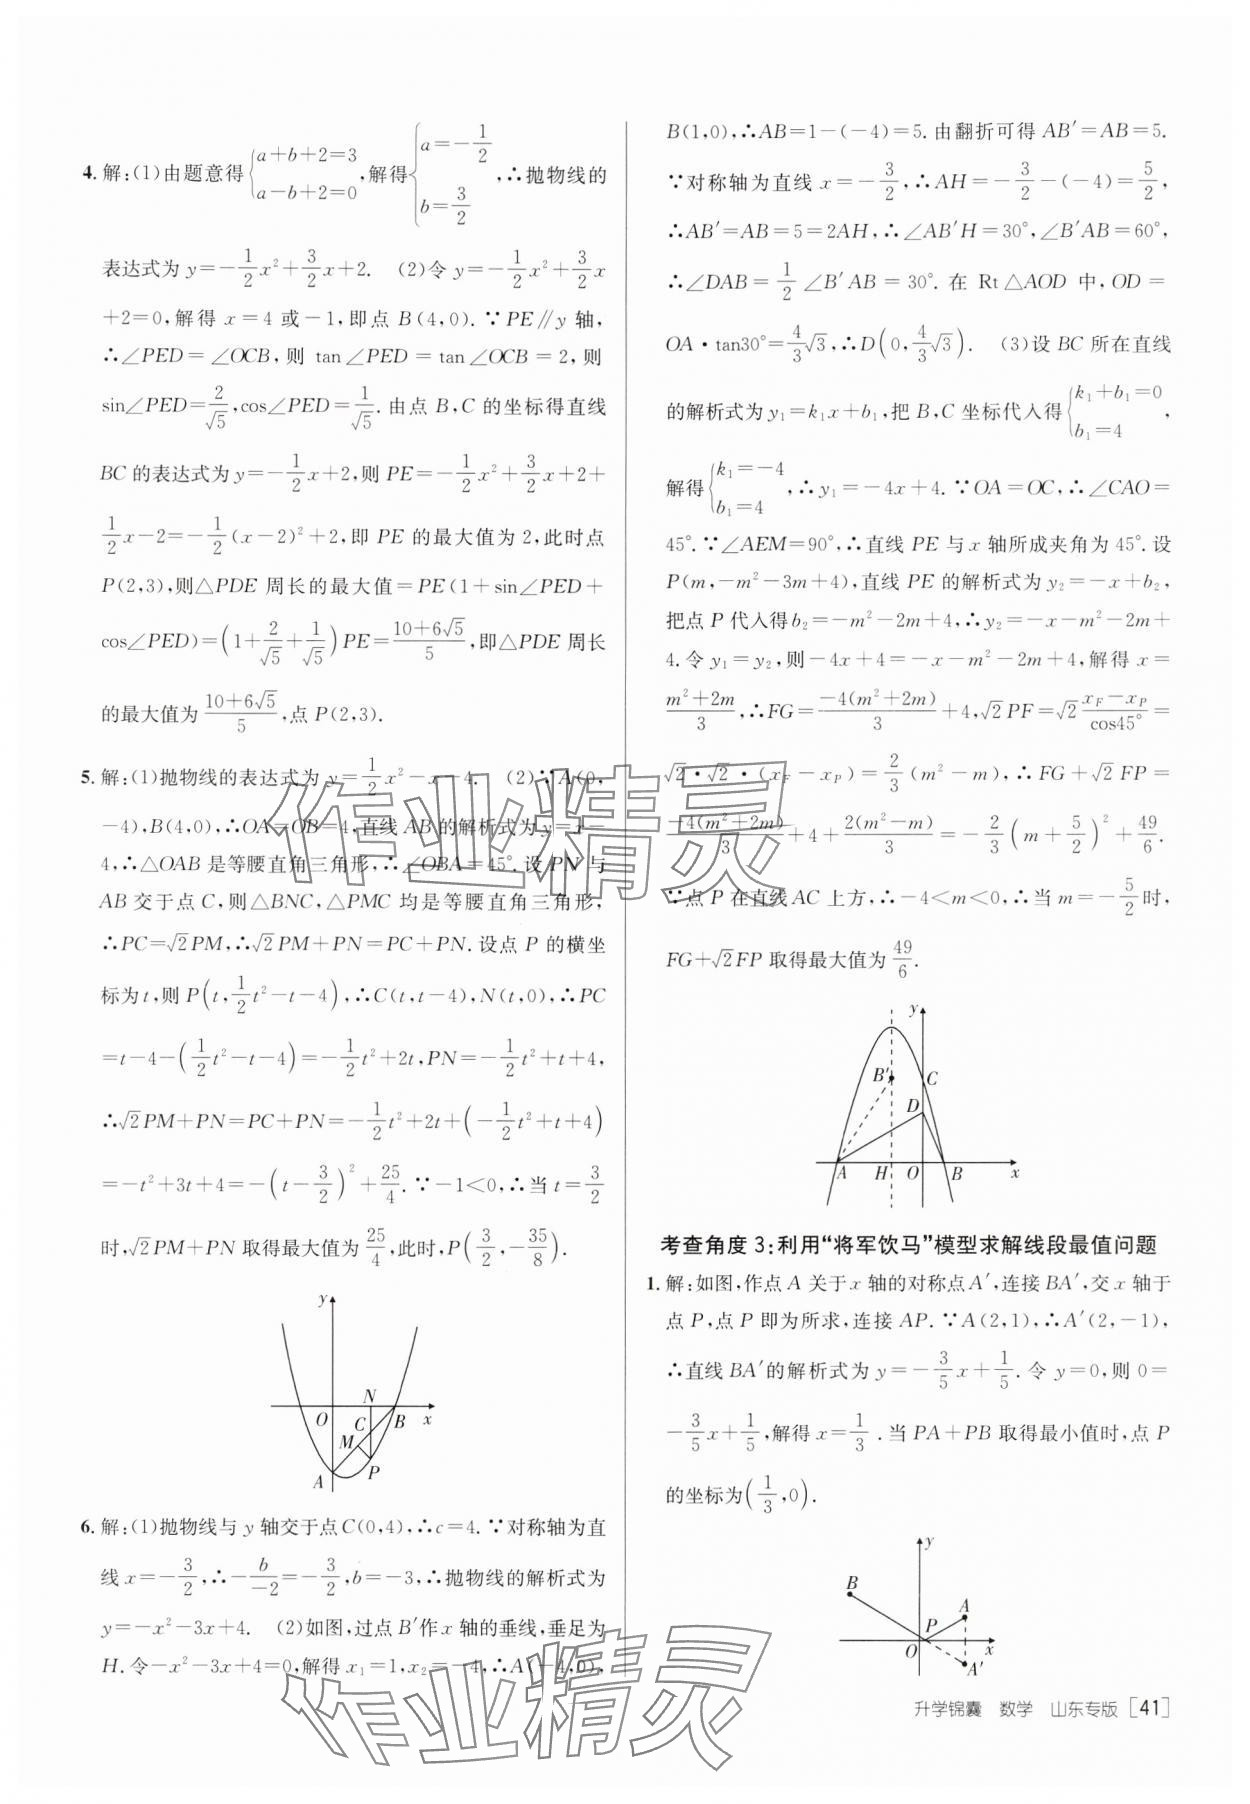 4. 解:(1)由题意得{a+b+2=3 a-b+2=0,解得{a=-1/2 b=3/2,∴抛物线的
表达式为 y=-1/2x²+3/2x+2. (2)令 y=-1/2x²+3/2x
+2=0,解得 x=4 或-1,即点 B(4,0).∵PE∥y 轴,
∴∠PED=∠OCB,则 tan∠PED=tan∠OCB=2,则
sin∠PED=2/√5,cos∠PED=1/√5.由点 B,C 的坐标得直线
BC 的表达式为 y=-1/2x+2,则 PE=-1/2x²+3/2x+2+
1/2x-2=-1/2(x-2)²+2,即 PE 的最大值为 2,此时点
P(2,3),则△PDE 周长的最大值=PE(1+sin∠PED+
cos∠PED)=(1+2/√5+1/√5)PE=(10+6√5)/5,即△PDE 周长
的最大值为(10+6√5)/5,点 P(2,3).
5. 解:(1)抛物线的表达式为 y=1/2x²-x-4. (2)∵A(0,
-4),B(4,0),∴OA=OB=4,直线 AB 的解析式为 y=x-
4,∴△OAB 是等腰直角三角形,∴∠OBA=45°.设 PN 与
AB 交于点 C,则△BNC,△PMC 均是等腰直角三角形,
∴PC=√2PM,∴√2PM+PN=PC+PN.设点 P 的横坐
标为t,则 P(t,1/2t²-t-4),∴C(t,t-4),N(t,0),∴PC
=t-4-(1/2t²-t-4)=-1/2t²+2t,PN=-1/2t²+t+4,
∴√2PM+PN=PC+PN=-1/2t²+2t+(-1/2t²+t+4)
=-t²+3t+4=-(t-3/2)²+25/4.∵-1<0,∴当 t=3/2
时,√2PM+PN取得最大值为25/4,此时,P(3/2,-35/8).
y
N
O
C
B
x
M
A
P
6. 解:(1)抛物线与 y 轴交于点C(0,4),∴c=4.∵对称轴为直
线 x=-3/2,∴-b/-2=-3/2,b=-3,∴抛物线的解析式为
y=-x²-3x+4. (2)如图,过点 B′作x 轴的垂线,垂足为
H.令-x²-3x+4=0,解得 x₁=1,x₂=-4,∴A(-4,0),
B(1,0),∴AB=1-(-4)=5.由翻折可得 AB′=AB=5.
∵对称轴为直线 x=-3/2,∴AH=-3/2-(-4)=5/2,
∴AB′=AB=5=2AH,∴∠AB′H=30°,∠B′AB=60°,
∴∠DAB=1/2∠B′AB=30°.在 Rt△AOD 中,OD=
OA·tan30°=4/3√3,∴D(0,4/3√3). (3)设 BC 所在直线
的解析式为 y₁=k₁x+b₁,把 B,C 坐标代入得{k₁+b₁=0 b₁=4,
解得{k₁=-4 b₁=4,∴y₁=-4x+4.∵OA=OC,∴∠CAO=
45°.∵∠AEM=90°,∴直线 PE 与 x 轴所成夹角为 45°.设
P(m,-m²-3m+4),直线 PE 的解析式为 y₂=-x+b₂,
把点 P 代入得b₂=-m²-2m+4,∴y₂=-x-m²-2m+
4.令 y₁=y₂,则-4x+4=-x-m²-2m+4,解得 x=
(m²+2m)/3,∴FG=-4(m²+2m)/3+4,√2PF=√2(x_F-x_P)/cos45°=
√2·√2·(x_F-x_P)=2/3(m²-m),∴FG+√2FP=
-4(m²+2m)/3+4+2(m²-m)/3=-2/3(m+5/2)²+49/6.
∵点 P 在直线 AC 上方,∴-4<m<0,∴当 m=-5/2时,
FG+√2FP 取得最大值为49/6.
y
B′
C
D
A
H
O
B
x
考查角度 3:利用“将军饮马”模型求解线段最值问题
1. 解:如图,作点 A 关于x 轴的对称点A′,连接 BA′,交 x 轴于
点 P,点 P 即为所求,连接 AP.∵A(2,1),∴A′(2,-1),
∴直线 BA′的解析式为 y=-3/5x+1/5.令 y=0,则 0=
-3/5x+1/5,解得 x=1/3.当 PA+PB 取得最小值时,点 P
的坐标为(1/3,0).
y
B
A
P
O
x
A′
作业精灵
作业精灵
升学锦囊 数学 山东专版 [41]